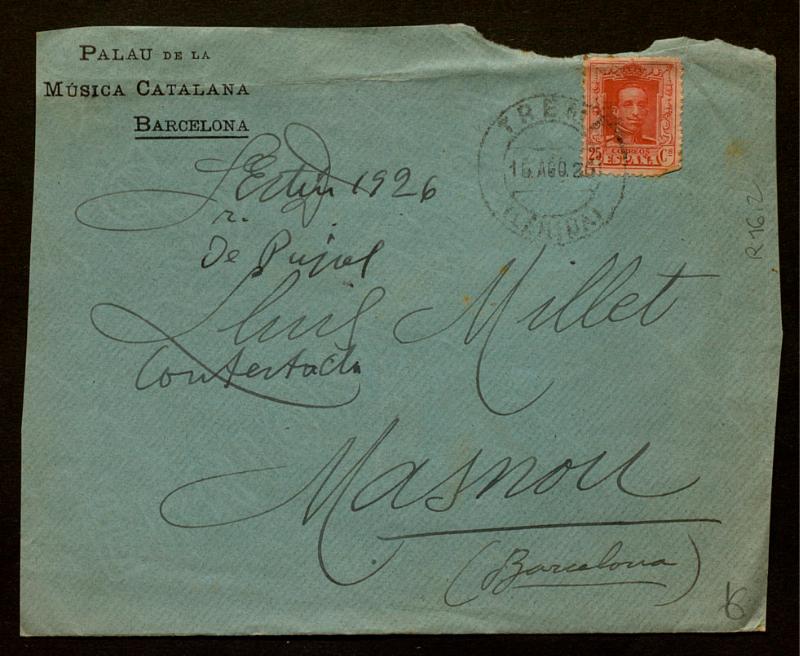 PALAU DE LA
MÚSICA CATALANA
BARCELONA
CORREOS
25 ESPAÑA Cs
TREN
16. AGO. 26
1926
r.
De Pujol
Lluis Millet
Contestada
Masnou
(Barcelona)
R 16.2